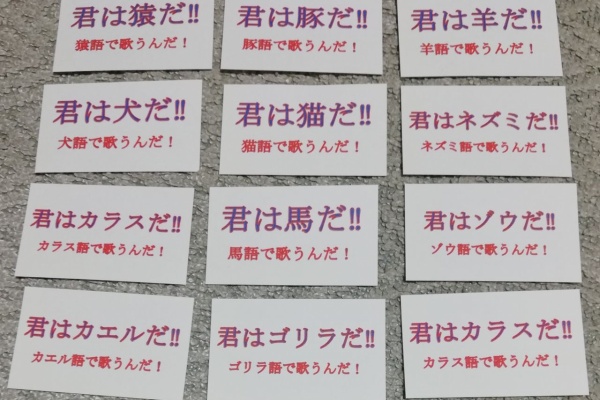 君は猿だ‼
猿語で歌うんだ！
君は豚だ‼
豚語で歌うんだ！
君は羊だ‼
羊語で歌うんだ！
君は犬だ‼
犬語で歌うんだ！
君は猫だ‼
猫語で歌うんだ！
君はネズミだ‼
ネズミ語で歌うんだ！
君はカラスだ‼
カラス語で歌うんだ！
君は馬だ‼
馬語で歌うんだ！
君はゾウだ‼
ゾウ語で歌うんだ！
君はカエルだ‼
カエル語で歌うんだ！
君はゴリラだ‼
ゴリラ語で歌うんだ！
君はカラスだ‼
カラス語で歌うんだ！